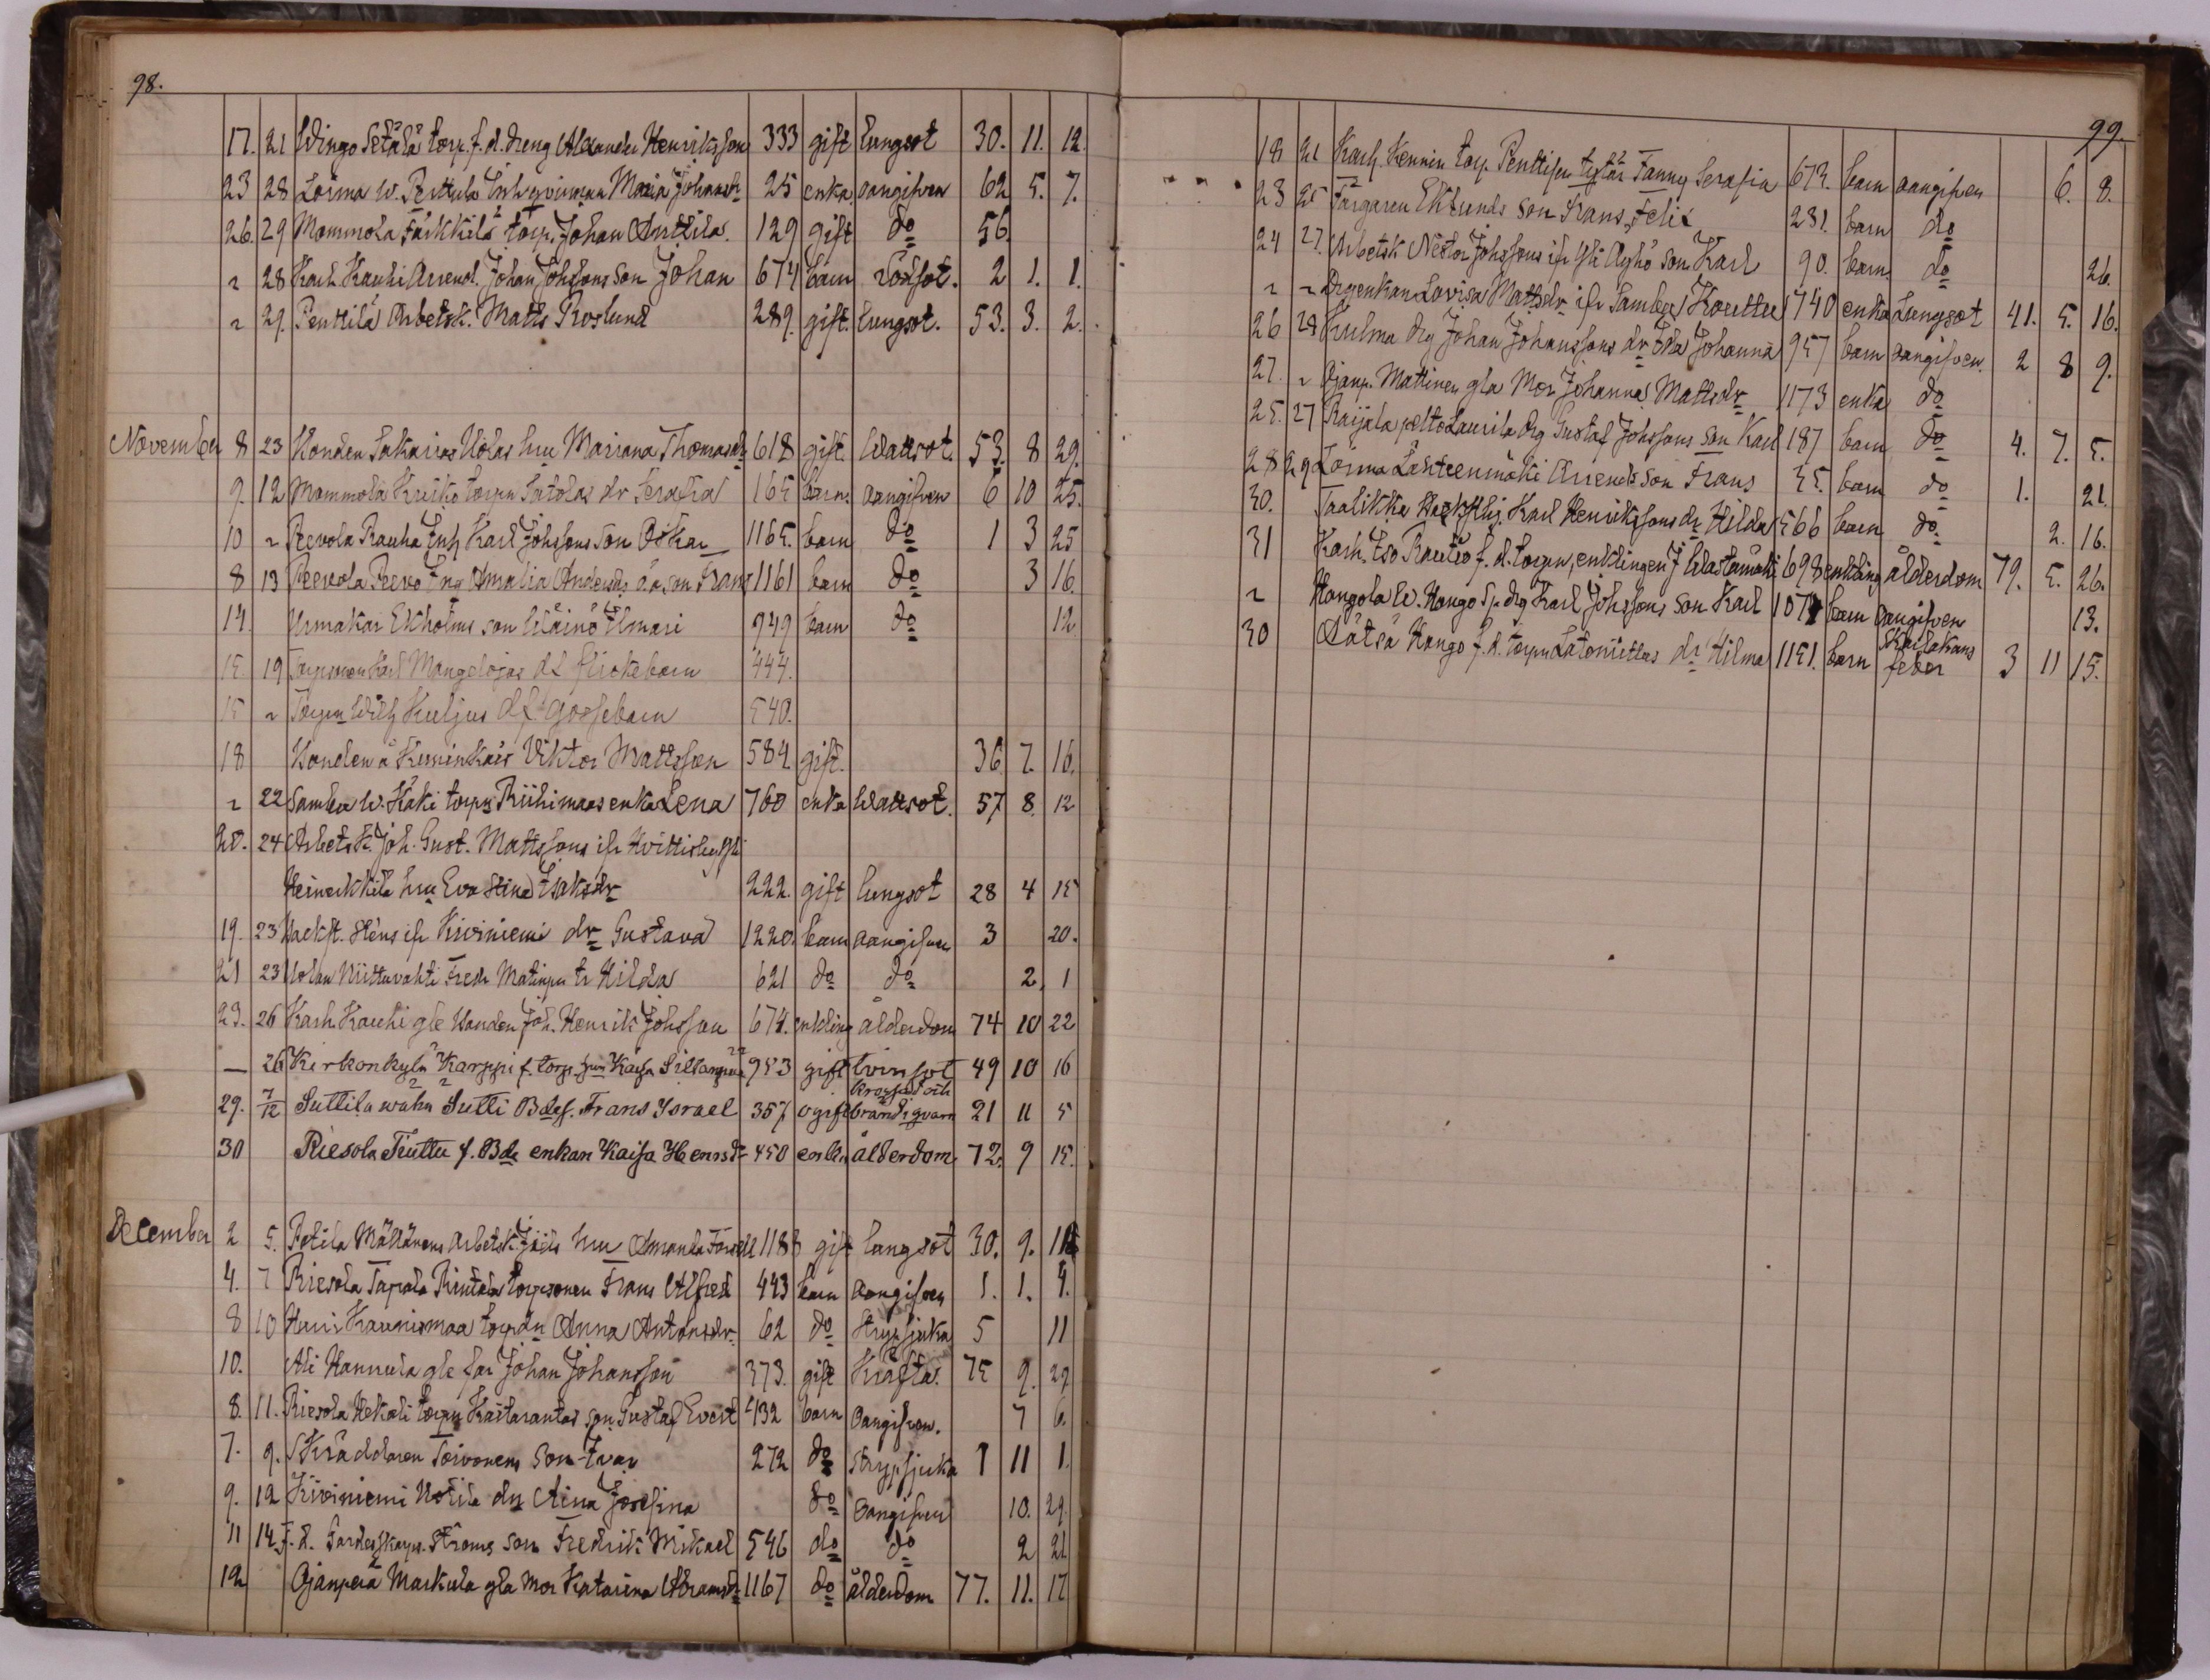 98.
17. 21 Wingo Setälä torp. f.d. dreng Alexander Henriksson 333 gift lungsot 30. 11. 12.
23 28 Loima w. Perttula Inh. Maria Johansdr 25 enka oangifven 62 5. 7.
26. 29 Mommola Farkkila torp. Johan Anttila. 129 gift do 56.
" 28 Karh. Kauhi Arrend. Johan Johssons son Johan 674 barn rödsot. 2 1. 1.
" 29. Penttilä Arbetsk. Matts Roslund 289. gift. lungsot. 53. 3. 2.
November 8 23 Bonden Sakarias Uolas hru Mariana Thomasdr 618 gift. Wattsot. 53. 8 29.
9. 12 Mommola Krekko torpn Satolas dr Serafia 165 barn. oangifven 6 10 25.
10 " Peevola Rauha Inh Karl Johssons son Oskar 1165. barn do 1 3 25
8 13 Peevola Peevo Amalia Andersdr o.ä. son Frans 1161 barn do 3 16.
14. Urmakar Ekholms son Wäinö Ilmari 949 barn do 12.
15. 19 Torpsonen Karl Mangelojas df flickebarn 444.
15 " Torpn Wilh Kuljus df gossebarn 540.
18 Bonden å Viktor Mattsson 584. gift. 36. 7. 16.
" 22 Sambu W. Kaki torpn Riihimaas enka Lena 760 enka Wattsot. 57 8. 12
20. 24 Arbetsk. Joh. Gust. Mattssons ifr Hvittisbo Gli
Heinikkila hru Eva Stina Isaksdr 222. gift lungsot 28 4 15
19. 23 Backst. Stens ifr Kiviniemi dr Gustava 1220. barn oangifven 3 20.
21 23 Uolan Niittuvahti Fredr Matinpn tr Hilda 621 do do 2. 1
23. 26 Karh. Kauhi gle Bonden Joh. Henrik Johsson 674. enkling ålderdom 74 10 22
— 26 Kirkonkylä Karppi f. torp. hru Kaisa 953 gift tvinsot 49 10 16
29. 7/12 Suttila waha Sutti Bdes. Frans Israel 357 ogift krossad och brändi qvarn 21 11 5
30 Riesola Tiuttu f. Bde enkan Kaisa Henrsdr 450 enka ålderdom 72. 9 15.
December 2 5. Potila Mällärens Arbetsk. hru Amanda 1188 gift lungsot 30. 9.
4. 7 Riesola Tapola Rintala torpsonen Frans Alfred 443 barn oangifven 1. 1. 4.
8 10 Huni Kaunismaa torpdr Anna Antonsdr. 62 do strypsjuka 5 11
10. Ali Hannula gle far Johan Johansson 373. gift Kräfta. 75 9. 29
8. 11. Riesola Uekoli torpn Kaitarantas son Gustaf Evert 432 barn oangifven. 7 6.
7. 9. Skräddaren Toivonens son Ivar 272 do strypsjuka 1 11 1.
9. 12 Kiviniemi Uotila dr Aina Josefina do oangifven 10. 29.
11 14 F.d. Gardesskarps. Ströms son Fredrik Mikael 546 do do 2 21
12 Ojanperä Markula gla mor Katarina Abramsdr 1167 do ålderdom 77. 11. 17
99.
18 21 Karh. Kennin torp. Penttisen tytär Fanny Serafia 673. barn oangifven 6. 8.
23 25 Färgaren Eklunds son Frans Felix 281. barn do
24 27. Arbetsk Nestor Johssons ifr Yli Äyhö son Karl 90. barn. do 26.
" " Drgenkan Lovisa Mattsdr ifr Sambu Kouttu 740 enka Lungsot 41. 5. 16.
26 28 Kulma drg Johan Johanssons dr Ida Johanna 957 barn oangifven. 2 8 9.
27. " Ojanp. Mattinen gla Mor Johanna Mattsdr 1173 enka do
25. 27 Raijala peltoLaurila drg Gustaf Johssons son Karl 187 barn do 4. 7. 5.
28 29 Loima Lähteenmäki Arrends son Frans 35. barn do 1. 21.
30. Taalikka Karl Henrikssons dr Hilda 566 barn do 2. 16.
31 Karh. Iso Rautio f.d. torpn, enklingen J Wastamäki 698 enkling ålderdom 79. 5. 26.
" Hangola W. Hongo f.d. drg Karl Johssons son Karl 1071 barn oangifven 13.
30 Sätsä Hongo f.d. torpn Latoniittus dr Hilma 1151. barn Skarlakans feber 3 11 15.